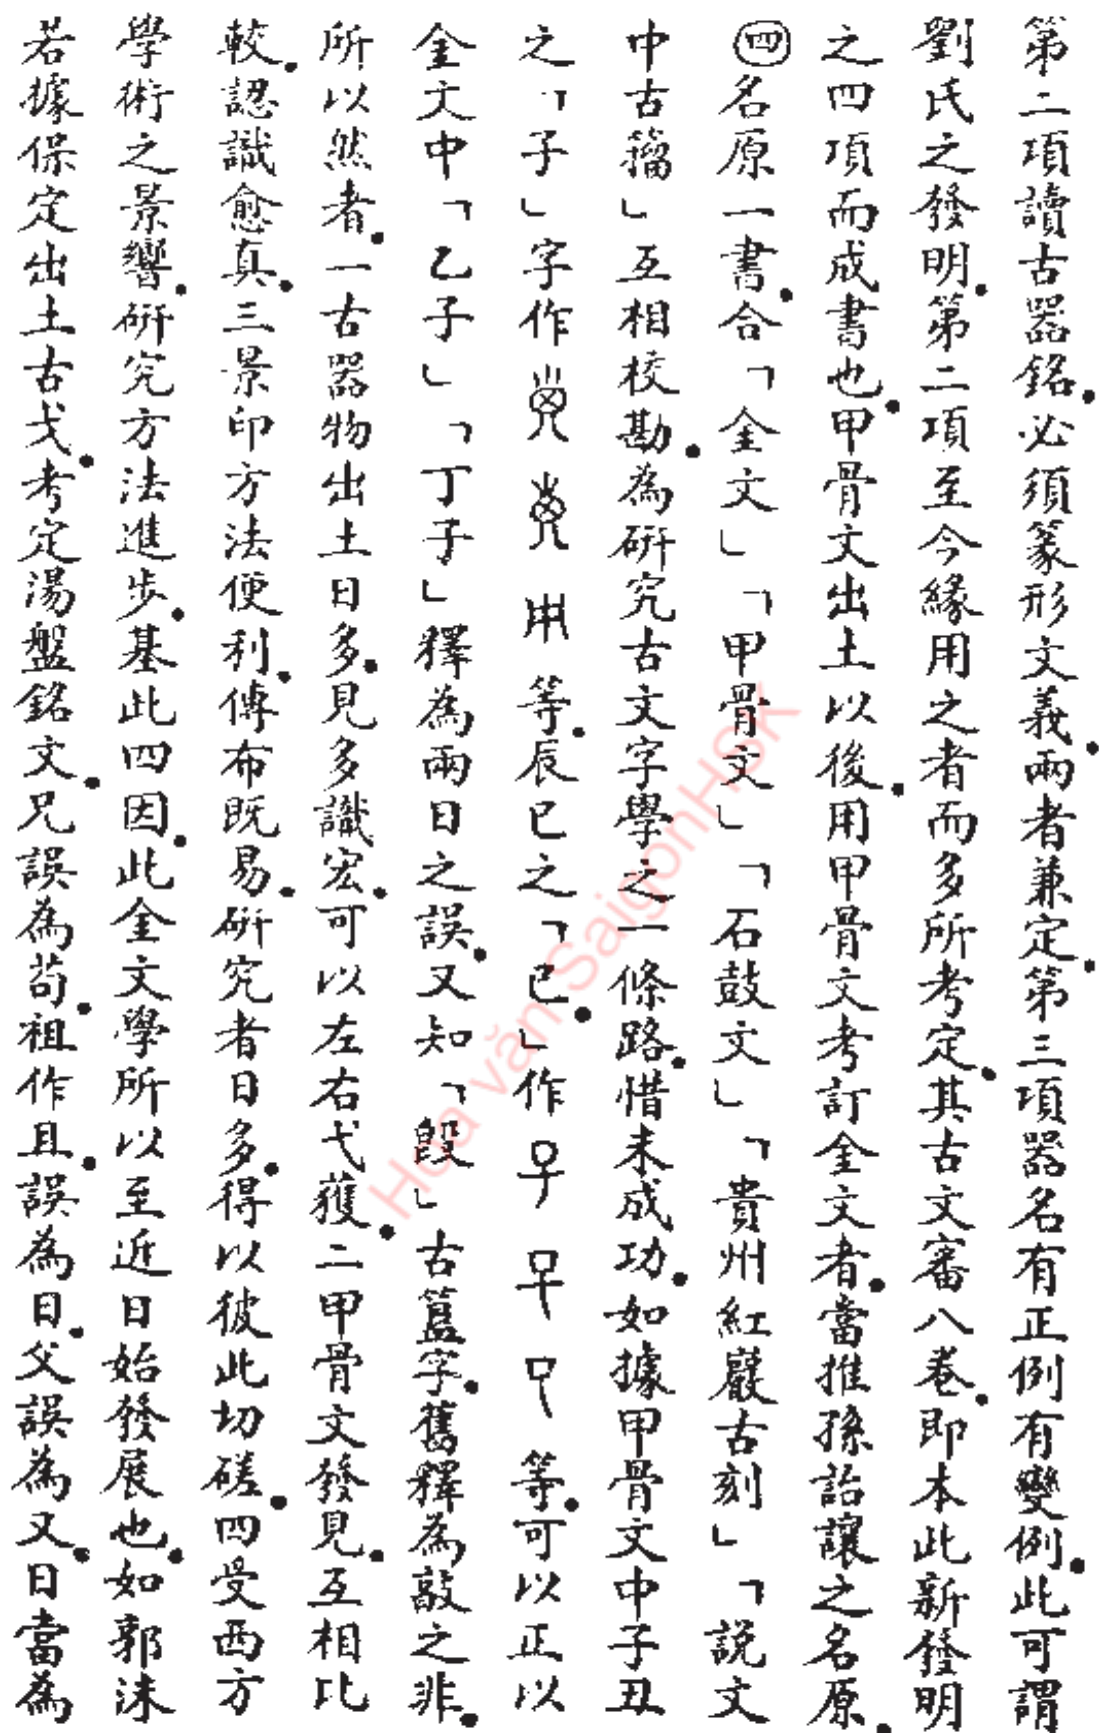 第二項讀古器銘。必須篆形文義。兩者兼定。第三項器名有正例有變例。此可謂
劉氏之發明。第二項至今緣用之者而多所考定。其古文審八卷。即本此新發明
之四項而成書也。甲骨文出土以後。用甲骨文考訂金文者。當推孫詒讓之名原。
㊃名原一書。合「金文」「甲骨文」「石鼓文」「貴州紅巖古刻」「説文
中古籀」互相校勘。為研究古文字學之一條路。惜未成功。如據甲骨文中子丑
之「子」字作等。辰巳之「巳。」作等。可以正以
金文中「乙子」「丁子」釋為兩日之誤。又知「𣪘」古簋字。舊釋為敲之非。
所以然者。一古器物出土日多。見多識宏。可以左右弋獲。二甲骨文發見。互相比
較。認識愈真。三景印方法便利。傳布既易。研究者日多。得以彼此切磋。四受西方
學術之景響。研究方法進步。基此四因。此金文學所以至近日始發展也。如郭沫
若據保定出土古戈。考定湯盤銘文。兄誤為苟。祖作且。誤為日。父誤為又。日當為
Hoa văn SaigonHSK